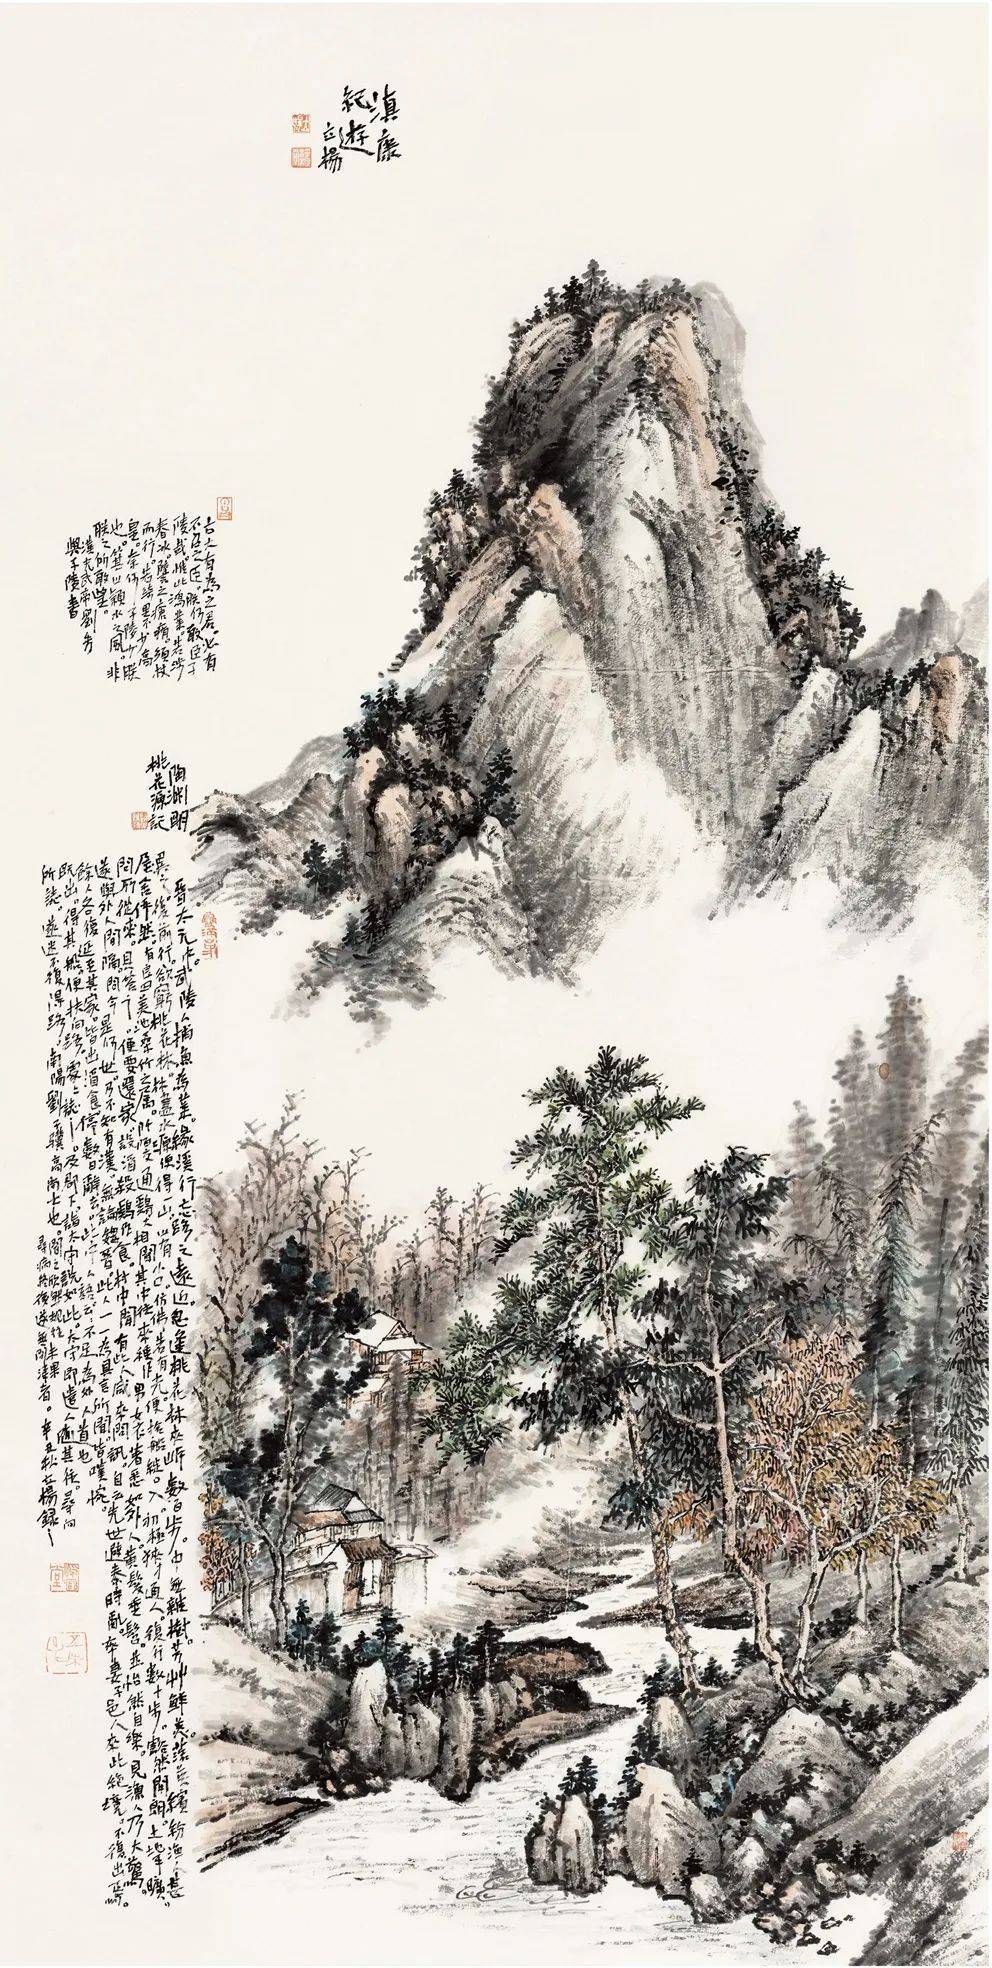 滇康
紀遊
立楊
古大有為之君。必有
不召之臣。朕何敢臣子
陵哉。惟此鴻業。若涉
春冰。譬之瘡痏。須杖
而行。若綺里不少高
皇。奈何子陵少朕
也。箕山潁水之風。非
朕之所敢望。
漢光武帝劉秀
與子陵書
陶淵明
桃花源記
晉太元中。武陵人捕魚為業。緣溪行。忘路之遠近。忽逢桃花林。夾岸數百步。中無雜樹。芳艸鮮美。落英繽紛。漁人甚
異之。復前行。欲窮桃花林。林盡水源。便得一山。山有小口。仿佛若有光。便捨船。從口入。初極狹。才通人。復行數十步。豁然開朗。土地平曠。
屋舍儼然。有良田美池桑竹之屬。阡陌交通。鷄犬相聞。其中往來種作。男女衣著。悉如外人。黃髮垂髫。並怡然自樂。見漁人。乃大驚。
問所從來。具答之。便要還家。設酒殺鷄作食。村中聞有此人。咸來問訊。自云先世避秦時亂。率妻子邑人來此絕境。不復出焉。
遂與外人間隔。問今是何世。乃不知有漢。無論魏晉。此人一一為具言所聞。皆嘆惋。
餘人各復延至其家。皆出酒食。停數日。辭去。此中人語云。不足為外人道也。
既出。得其船。便扶向路。處處誌之。及郡下。詣太守。說如此。太守即遣人隨其往。尋向
所誌。遂迷不復得路。南陽劉子驥。高尚士也。聞之欣然規往。未果
尋病終。後遂無問津者。辛丑秋立楊錄之